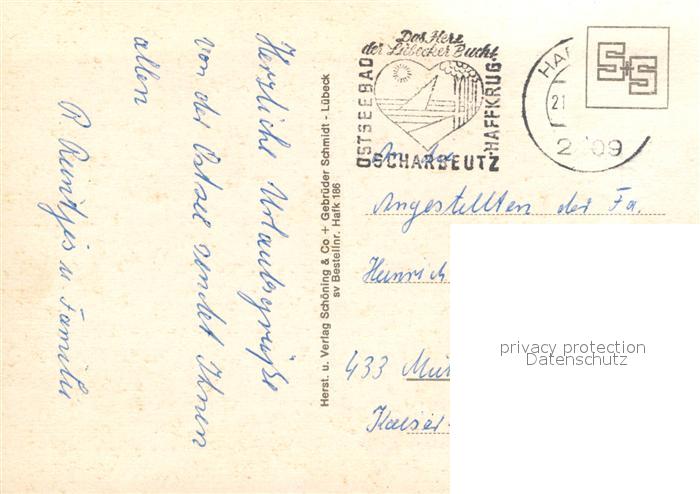 Herzliche Urlaubsgrüße
von der Ostsee sendet Ihnen
allen
R. Reintjes u Familie
Herst. u. Verlag Schöning & Co + Gebrüder Schmidt - Lübeck
sv Bestellnr. Hafk 186
Das Herz
der Lübecker Bucht
OSTSEEBAD
SCHARBEUTZ
HAFFKRUG
HAF
21
2409
S+S
An die
Angestellten der Fa.
Heinrich
433 Mül
Kaiser-
privacy protection
Datenschutz